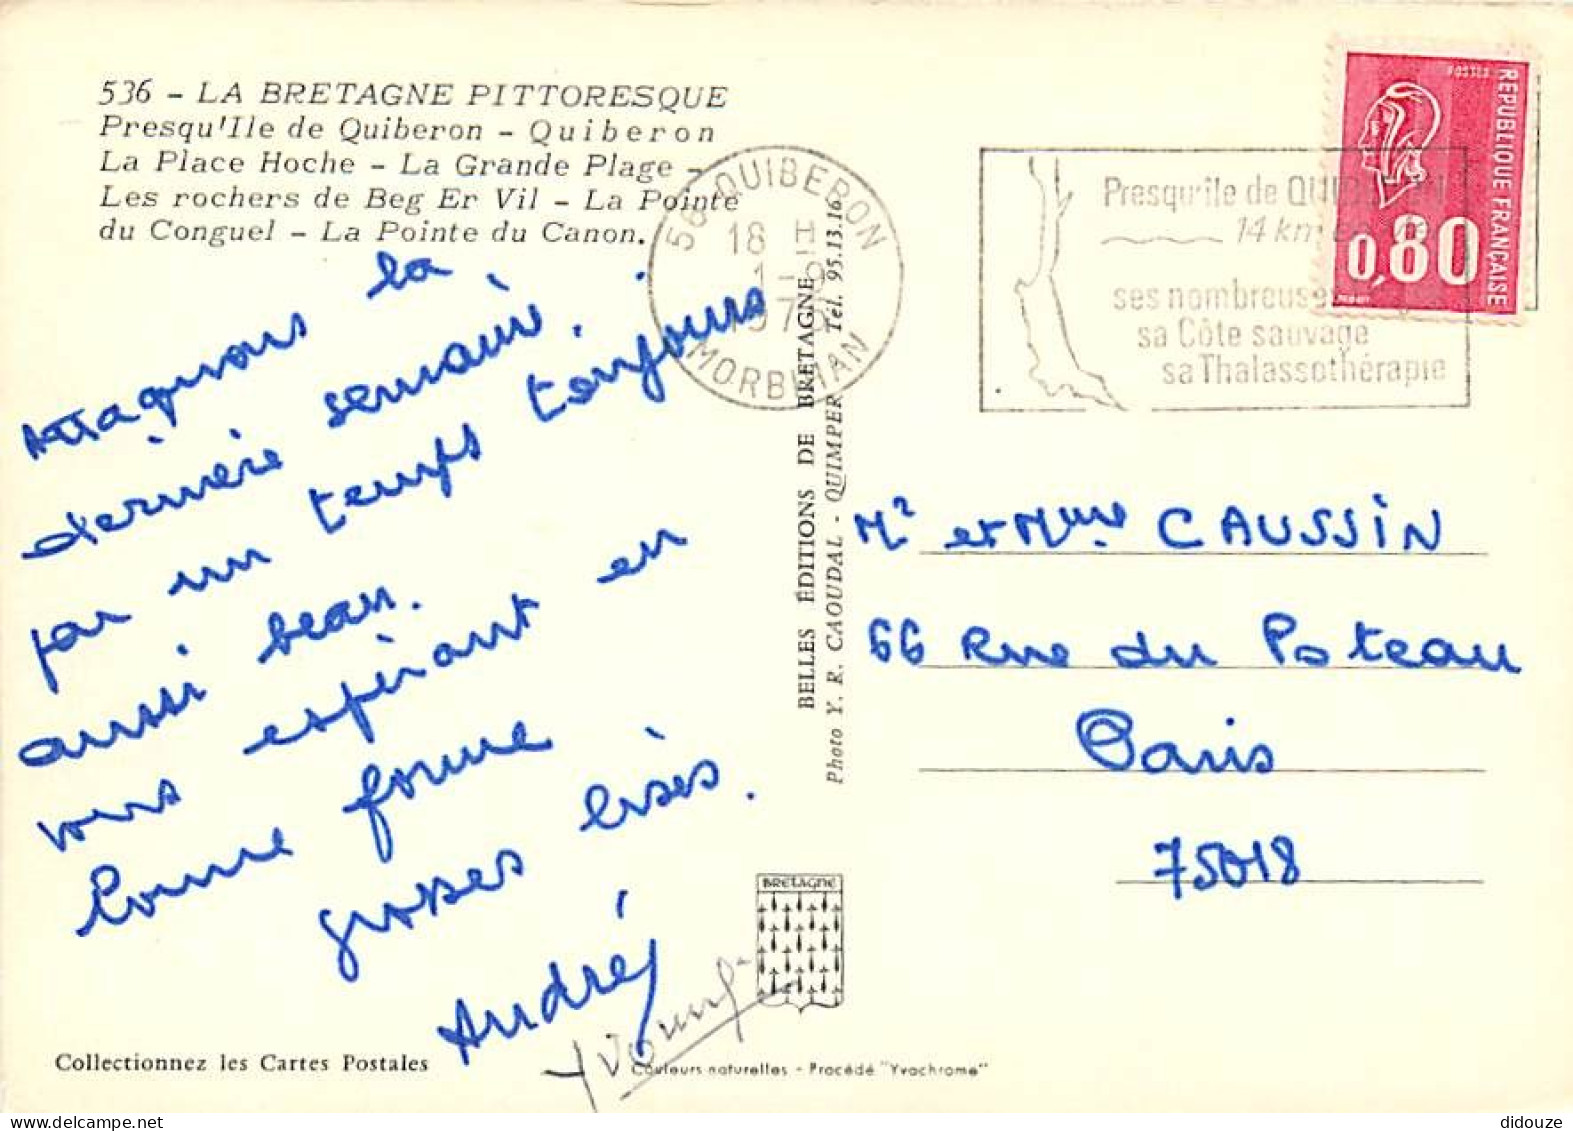 536 - LA BRETAGNE PITTORESQUE
Presqu'Ile de Quiberon - Quiberon
La Place Hoche - La Grande Plage -
Les rochers de Beg Er Vil - La Pointe
du Conguel - La Pointe du Canon.
56 QUIBERON
18 H
1-9
MORBIHAN
Presqu'île de QUIBERON
14 km
ses nombreuses
sa Côte sauvage
sa Thalassothérapie
POSTES
REPUBLIQUE FRANÇAISE
0,80
Attaquons la
dernière semaine
par un temps toujours
aussi beau.
vous espérant en
bonne forme
grosses bises.
André
Mr et Mme CAUSSIN
66 Rue du Poteau
Paris
75018
BELLES ÉDITIONS DE BRETAGNE
Photo Y. R. CAOUDAL - QUIMPER Tél. 95.13.16
BRETAGNE
Collectionnez les Cartes Postales
Couleurs naturelles - Procédé "Yvochrome"
didouze